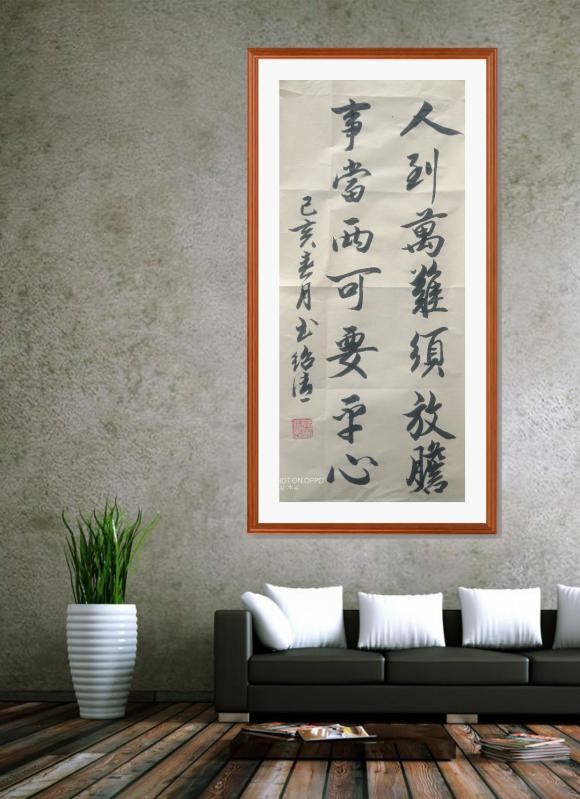 人到萬難須放膽
事當兩可要平心
己亥春月書紹清
HOT ON OPPO